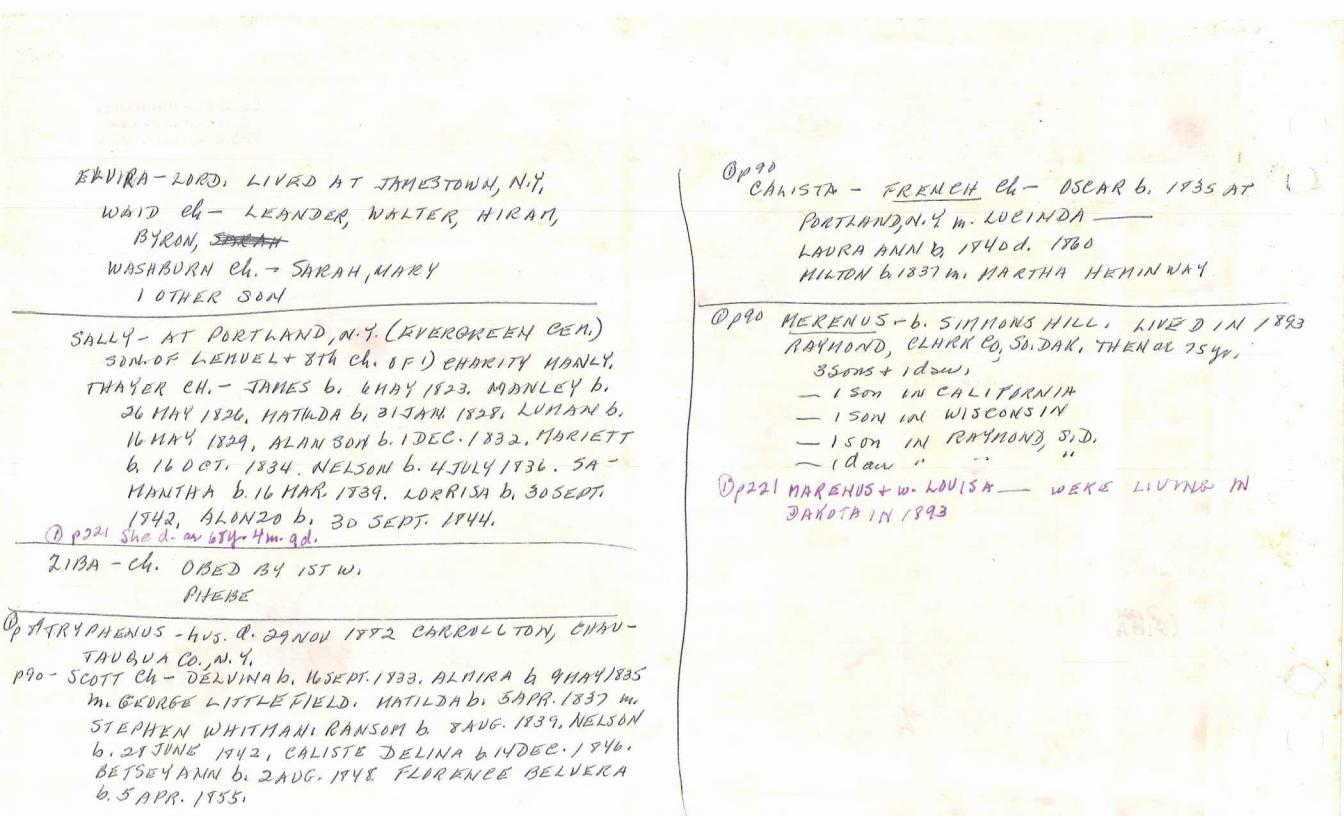 ELVIRA – LORD. LIVED AT JAMESTOWN, N.Y.
WAID Ch – LEANDER, WALTER, HIRAM,
BYRON, SARAH
WASHBURN Ch. – SARAH, MARY
1 OTHER SON
SALLY – AT PORTLAND, N.Y. (EVERGREEN CEM.)
SON. OF LEMUEL + 8th Ch. OF 1) CHARITY MANLY.
THAYER CH. – JAMES b. 6 MAY 1823. MANLEY b.
26 MAY 1826, MATILDA b. 31 JAN. 1828. LUMAN b.
16 MAY 1829, ALANSON b. 1 DEC. 1832, MARIETT
b. 16 OCT. 1834. NELSON b. 4 JULY 1836. SA-
MANTHA b. 16 MAR. 1839. LORRISA b. 30 SEPT.
1842, ALONZO b. 30 SEPT. 1844.
① p221 She d. ae 68y. 4m. 9d.
ZIBA – Ch. OBED BY 1ST W.
PHEBE
① p TRYPHENUS – hus. d. 29 NOV 1882 CARROLLTON, CHAU-
TAUQUA CO., N.Y.
p90 – SCOTT Ch – DELVINA b. 16 SEPT. 1833. ALMIRA b 9 MAY 1835
m. GEORGE LITTLEFIELD. MATILDA b. 5 APR. 1837 m.
STEPHEN WHITMAN. RANSOM b. 8 AUG. 1839. NELSON
b. 28 JUNE 1842, CALISTE DELINA b. 14 DEC. 1846.
BETSEY ANN b. 2 AUG. 1848 FLORENCE BELVERA
b. 5 APR. 1855.
① p90
CALISTA – FRENCH Ch – OSCAR b. 1835 AT
PORTLAND, N.Y. m. LUCINDA ——
LAURA ANN b. 1840 d. 1860
MILTON b. 1837 m. MARTHA HEMINWAY
① p90 MERENUS – b. SIMMONS HILL. LIVED IN 1893
RAYMOND, CLARK CO, SO. DAK. THEN ae 75 yr.
3 sons + 1 dau.
— 1 SON IN CALIFORNIA
— 1 SON IN WISCONSIN
— 1 son IN RAYMOND, S.D.
— 1 dau " " "
① p221 MARENUS + w. LOUISA —— WERE LIVING IN
DAKOTA IN 1893